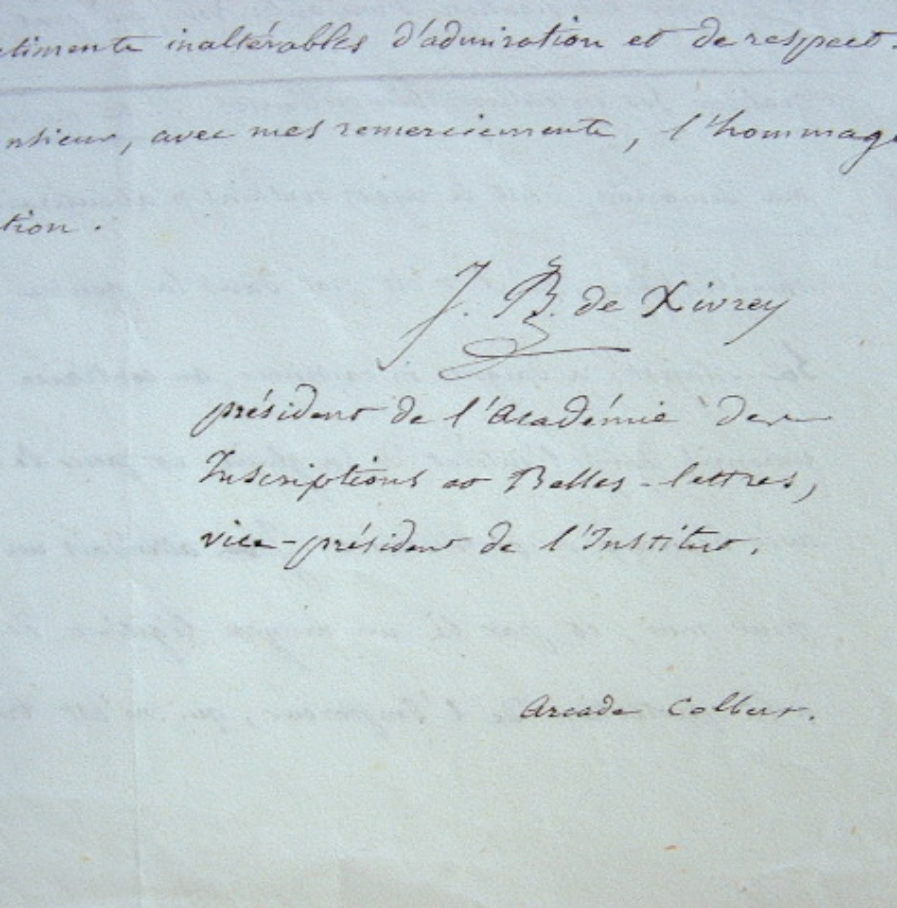 timents inaltérables d'admiration et de respect.
nsieur, avec mes remerciements, l'hommage
tion.
J. B. de Xivrey
président de l'Académie des
Inscriptions et Belles-lettres,
vice-président de l'Institut.
Arcade Colbert.